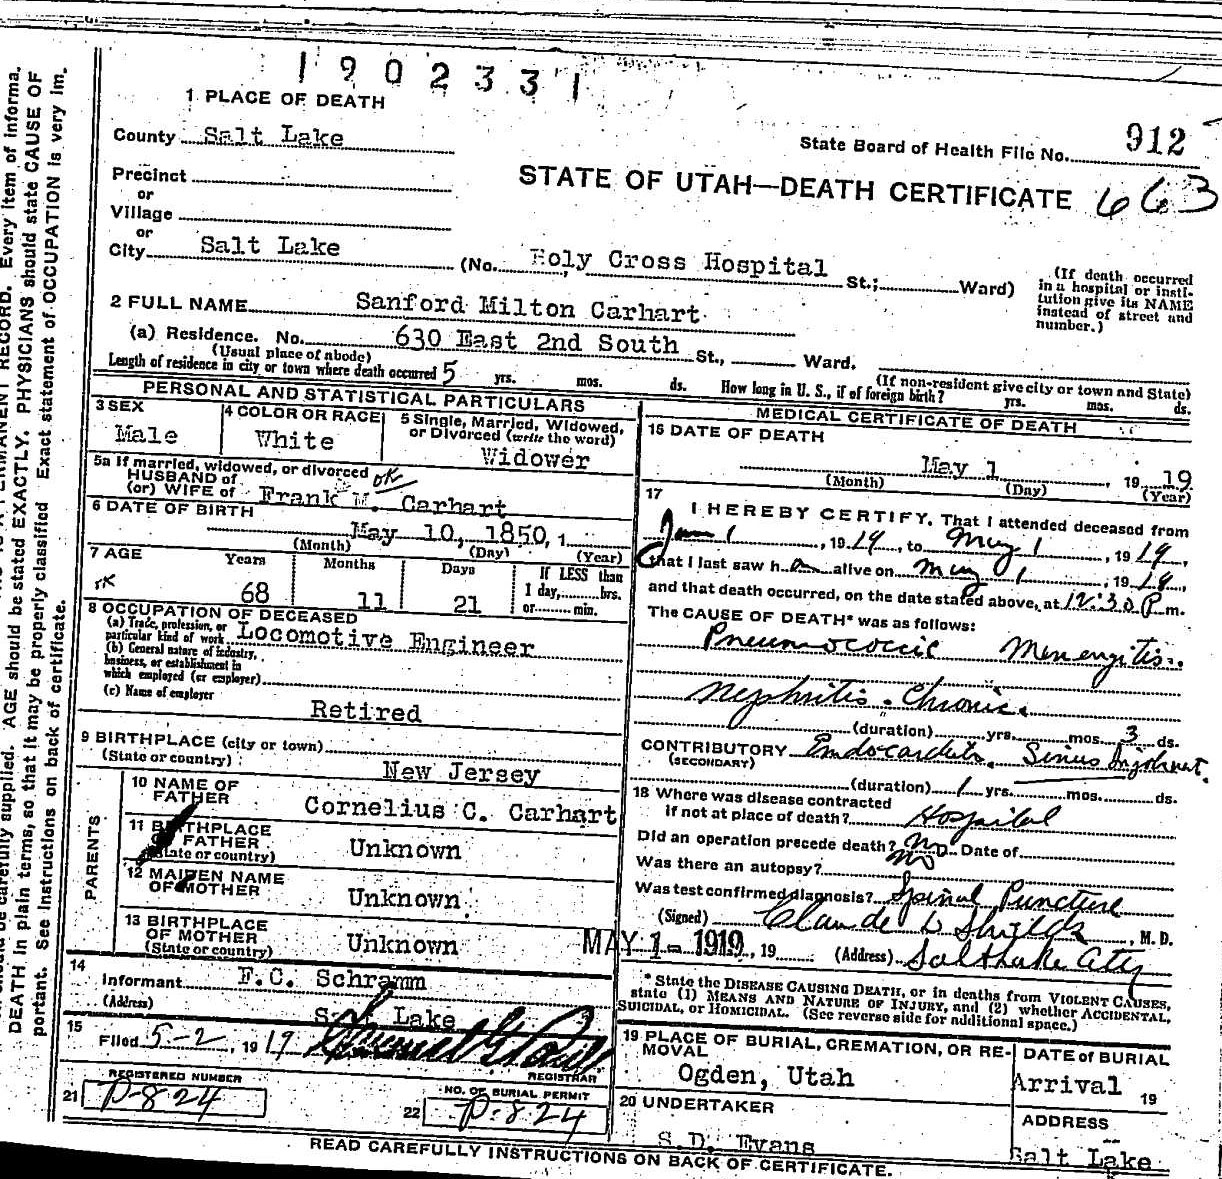 1902331
1 PLACE OF DEATH
County Salt Lake
State Board of Health File No. 912
Precinct
or
Village
or
City Salt Lake
STATE OF UTAH—DEATH CERTIFICATE 663
(No. Holy Cross Hospital St.; Ward)
(If death occurred
in a hospital or insti-
tution give its NAME
instead of street and
number.)
2 FULL NAME Sanford Milton Carhart
(a) Residence. No. 630 East 2nd South St., Ward.
(Usual place of abode)
(If non-resident give city or town and State)
Length of residence in city or town where death occurred 5 yrs. mos. ds. How long in U. S., if of foreign birth? yrs. mos. ds.
PERSONAL AND STATISTICAL PARTICULARS
3 SEX
Male
4 COLOR OR RACE
White
5 Single, Married, Widowed,
or Divorced (write the word)
Widower
5a If married, widowed, or divorced ok
HUSBAND of
(or) WIFE of Frank M. Carhart
6 DATE OF BIRTH
May 10, 1850, 1
(Month) (Day) (Year)
7 AGE
Years Months Days
ok 68 11 21
If LESS than
1 day, hrs.
or min.
8 OCCUPATION OF DECEASED
(a) Trade, profession, or
particular kind of work Locomotive Engineer
(b) General nature of industry,
business, or establishment in
which employed (or employer)
(c) Name of employer
Retired
9 BIRTHPLACE (city or town)
(State or country)
New Jersey
PARENTS
10 NAME OF
FATHER
Cornelius C. Carhart
11 BIRTHPLACE
OF FATHER
(State or country)
Unknown
12 MAIDEN NAME
OF MOTHER
Unknown
13 BIRTHPLACE
OF MOTHER
(State or country)
Unknown
14
Informant F.C. Schramm
(Address)
Salt Lake
15
Filed 5-2, 1919
REGISTRAR
REGISTERED NUMBER
21 P-824
NO. OF BURIAL PERMIT
22 P-824
MEDICAL CERTIFICATE OF DEATH
16 DATE OF DEATH
May 1, 19 19
(Month) (Day) (Year)
17
I HEREBY CERTIFY, That I attended deceased from
1, 1919, to May 1, 1919,
that I last saw h alive on May 1, 1919,
and that death occurred, on the date stated above, at 12:30 P.m.
The CAUSE OF DEATH* was as follows:
Pneumococcic Menengitis.
Nephritis. Chronic.
(duration) yrs. mos. 3 ds.
CONTRIBUTORY Endocarditis. Sinus
(SECONDARY)
(duration) 1 yrs. mos. ds.
18 Where was disease contracted
if not at place of death? Hospital
Did an operation precede death? no Date of
Was there an autopsy? no
Was test confirmed diagnosis? Spinal Puncture
(Signed) Claude L Shields, M. D.
MAY 1 - 1919, 19 (Address) Salt Lake City
* State the DISEASE CAUSING DEATH, or in deaths from VIOLENT CAUSES,
state (1) MEANS AND NATURE OF INJURY, and (2) whether ACCIDENTAL,
SUICIDAL, or HOMICIDAL. (See reverse side for additional space.)
19 PLACE OF BURIAL, CREMATION, OR RE-
MOVAL
Ogden, Utah
DATE of BURIAL
Arrival 19
20 UNDERTAKER
S.D. Evans
ADDRESS
Salt Lake
READ CAREFULLY INSTRUCTIONS ON BACK OF CERTIFICATE.
PERMANENT RECORD. Every item of informa-
be carefully supplied. AGE should be stated EXACTLY. PHYSICIANS should state CAUSE OF
DEATH in plain terms, so that it may be properly classified Exact statement of OCCUPATION is very im-
portant. See instructions on back of certificate.